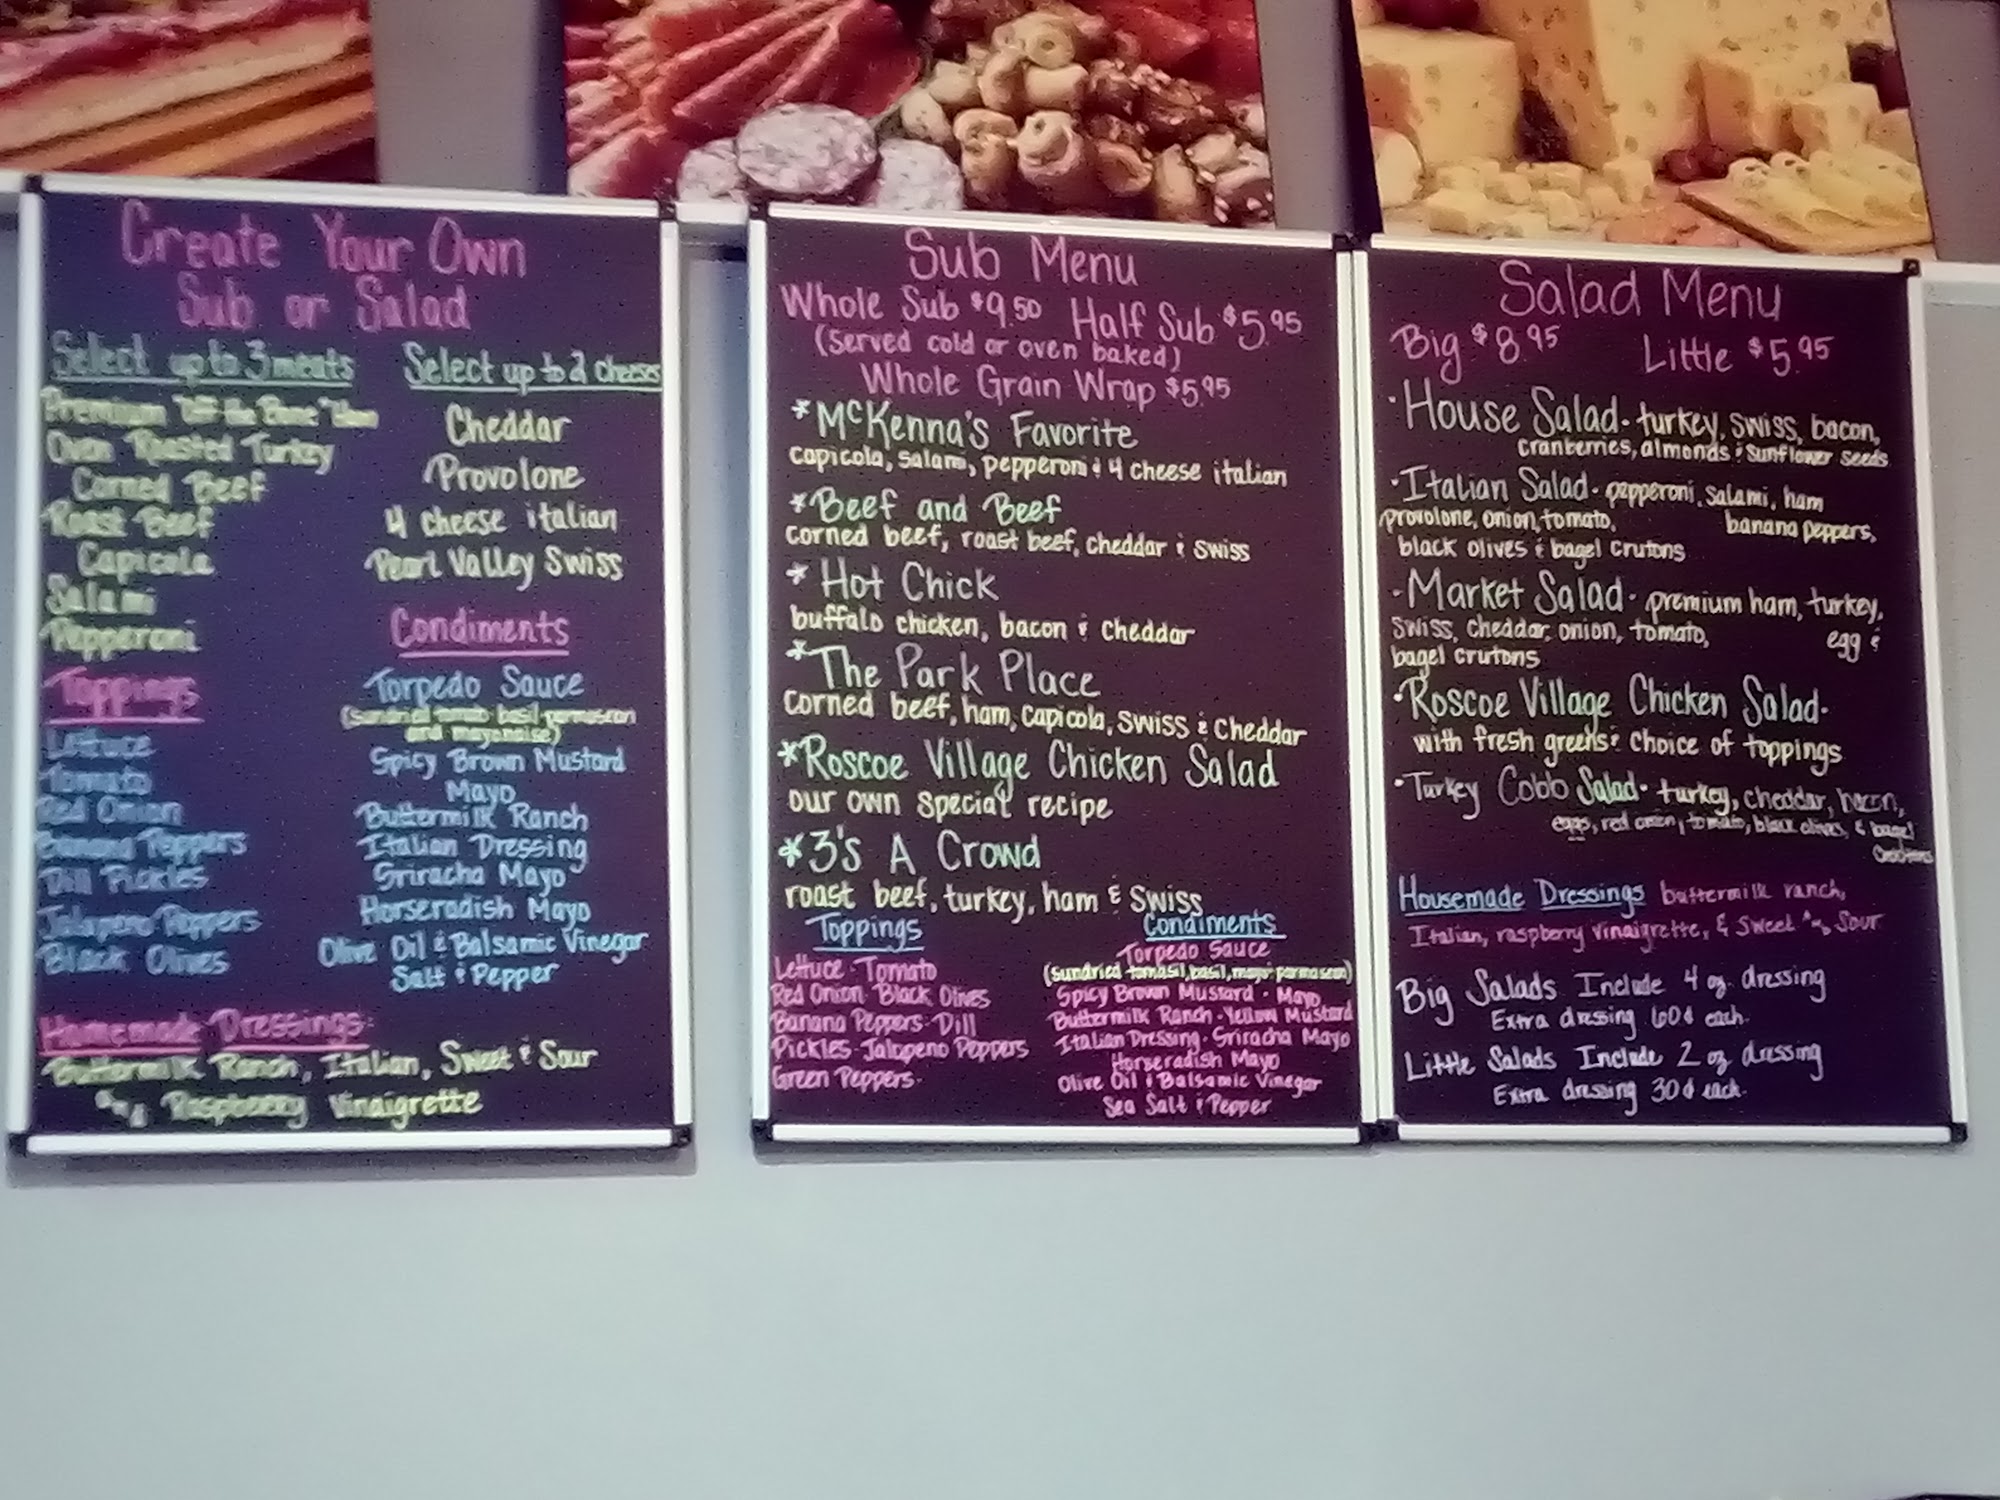 Create Your Own
Sub or Salad
Select up to 3 meats
Premium "Off the Bone" Ham
Oven Roasted Turkey
Corned Beef
Roast Beef
Capicola
Salami
Pepperoni
Toppings
Lettuce
Tomato
Red Onion
Banana Peppers
Dill Pickles
Jalapeno Peppers
Black Olives
Select up to 2 cheeses
Cheddar
Provolone
4 cheese italian
Pearl Valley Swiss
Condiments
Torpedo Sauce
(sundried tomato basil parmesean
and mayonaise)
Spicy Brown Mustard
Mayo
Buttermilk Ranch
Italian Dressing
Sriracha Mayo
Horseradish Mayo
Olive Oil & Balsamic Vinegar
Salt & Pepper
Homemade Dressings:
Buttermilk Ranch, Italian, Sweet & Sour
and Raspberry Vinaigrette
Sub Menu
Whole Sub $9.50 Half Sub $5.95
(Served cold or oven baked)
Whole Grain Wrap $5.95
*McKenna's Favorite
capicola, salami, pepperoni & 4 cheese italian
*Beef and Beef
corned beef, roast beef, cheddar & swiss
*Hot Chick
buffalo chicken, bacon & cheddar
*The Park Place
corned beef, ham, capicola, swiss & cheddar
*Roscoe Village Chicken Salad
our own special recipe
*3's A Crowd
roast beef, turkey, ham & swiss
Toppings
Lettuce · Tomato
Red Onion · Black Olives
Banana Peppers · Dill
Pickles · Jalapeno Peppers
Green Peppers·
Condiments
Torpedo Sauce
(sundried basil, mayo parmesean)
Spicy Brown Mustard · Mayo
Buttermilk Ranch · Yellow Mustard
Italian Dressing · Sriracha Mayo
Horseradish Mayo
Olive Oil & Balsamic Vinegar
Sea Salt & Pepper
Salad Menu
Big $8.95 Little $5.95
·House Salad· turkey, swiss, bacon,
cranberries, almonds & sunflower seeds
·Italian Salad· pepperoni, salami, ham
provolone, onion, tomato, banana peppers,
black olives & bagel crutons
·Market Salad· premium ham, turkey,
swiss, cheddar, onion, tomato, egg &
bagel crutons
·Roscoe Village Chicken Salad·
with fresh greens & choice of toppings
·Turkey Cobb Salad· turkey, cheddar, bacon,
eggs, red onion, tomato, black olives, & bagel
Housemade Dressings buttermilk ranch,
Italian, raspberry vinaigrette, & Sweet and Sour
Big Salads Include 4 oz. dressing
Extra dressing 60¢ each.
Little Salads Include 2 oz dressing
Extra dressing 30¢ each.